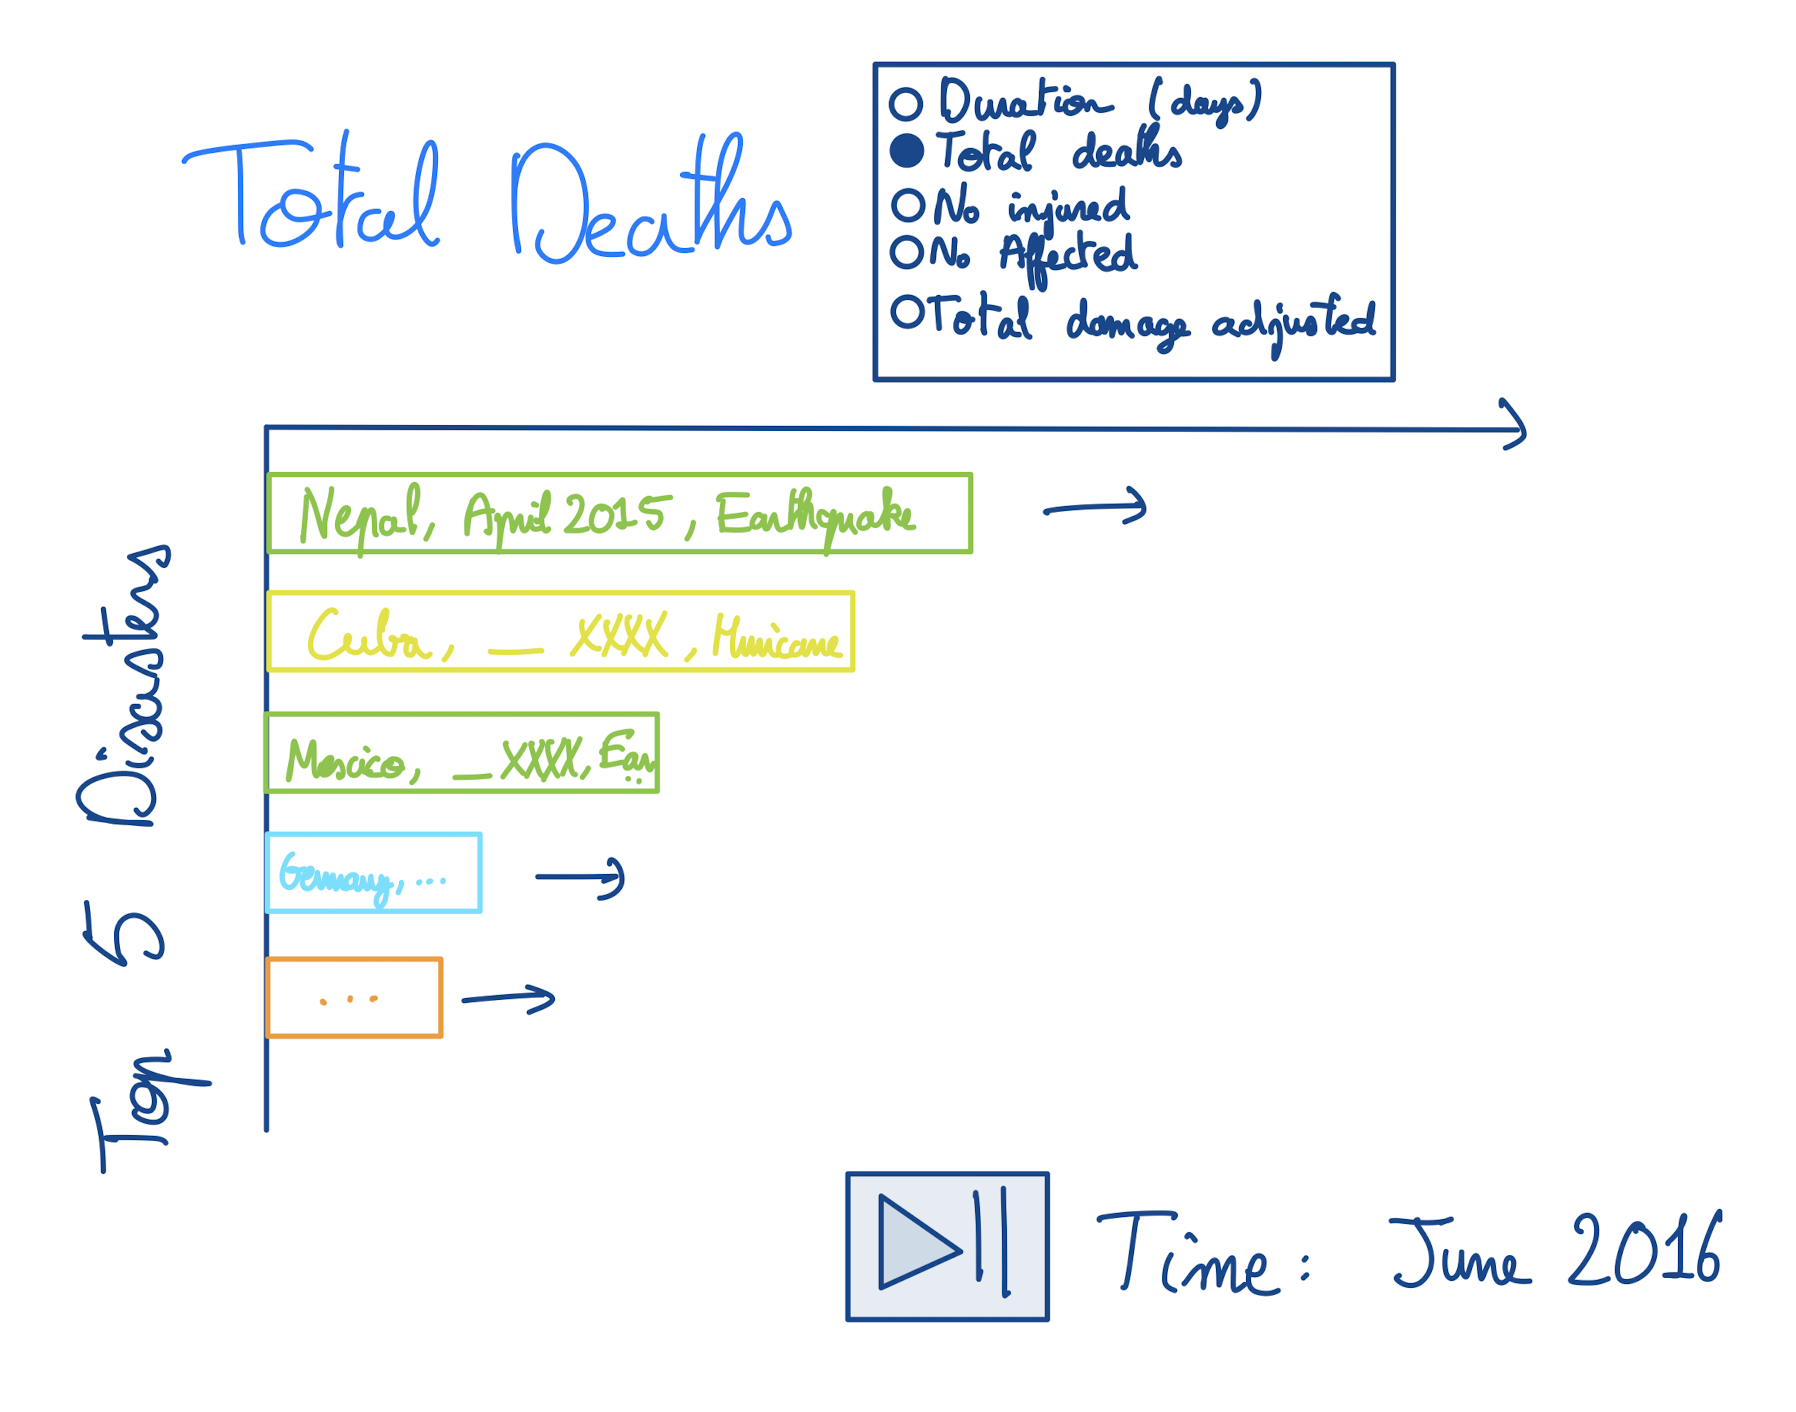 Total Deaths
Duration (days)
Total deaths
No injured
No Affected
Total damage adjusted
Nepal, April 2015, Earthquake
Cuba, __ XXXX, Hurricane
Mexico, __ XXXX, Ear..
Germany, ...
...
Top 5 Disasters
Time: June 2016